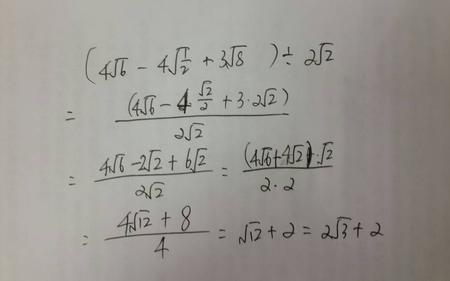 (4√6 - 4√(1/2) + 3√8 ) ÷ 2√2
= (4√6 - 4 √2/2 + 3·2√2) / 2√2
= (4√6 - 2√2 + 6√2) / 2√2 = (4√6 + 4√2)·√2 / 2·2
= (4√12 + 8) / 4 = √12 + 2 = 2√3 + 2